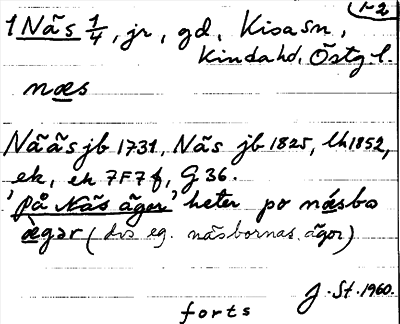 F2
1 Näs 1/4, jr, gd, Kisa sn,
Kinda hd, Östg l.
næs
Näas jb 1731, Näs jb 1825, lk 1852,
ek, ek 7F7f, G 36.
'på Näs ägor' heter po næsbo
ægər (dvs eg. näsbornas ägor)
J. St. 1960.
forts